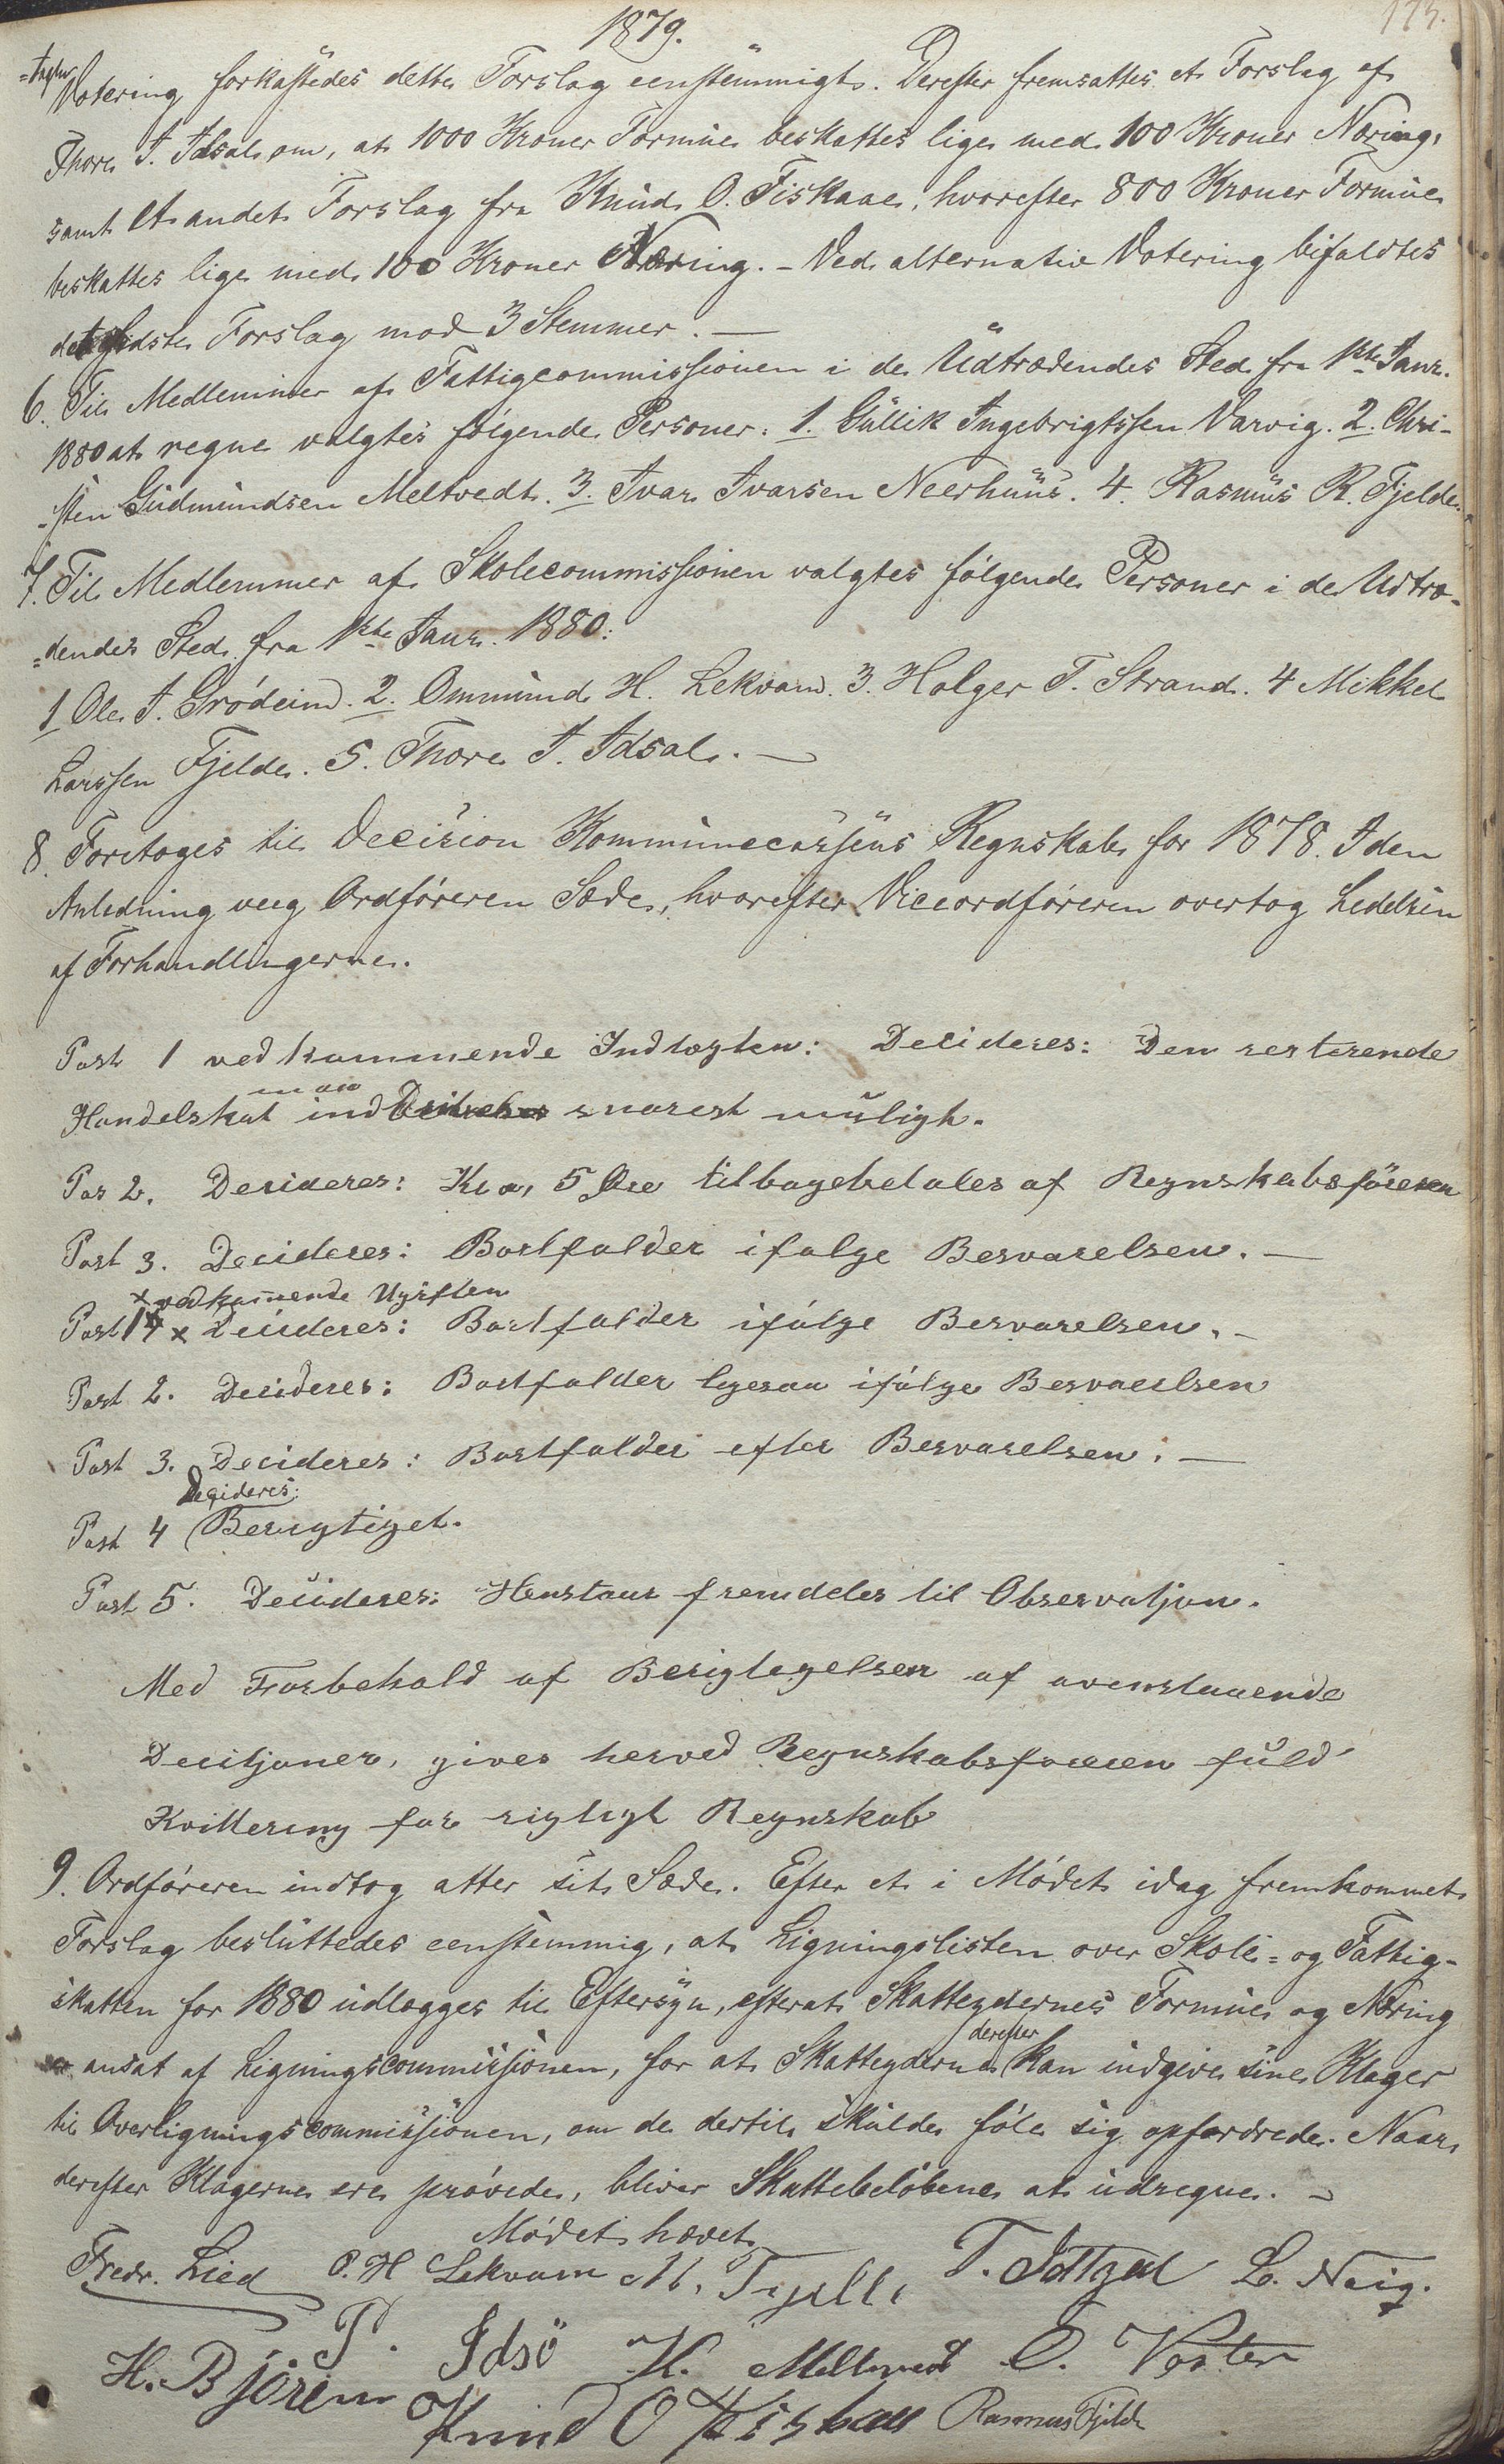 1879.
173.
=tagen
Votering forkastedes dette Forslag eenstemmigt. Derefter fremsattes et Forslag af
Thore T. Idsal om, at 1000 Kroner Formue beskattes lige med 100 Kroner Næring,
samt Et andet Forslag fra Knud O. Fiskaae, hvorefter 800 Kroner Formue
beskattes lige med 100 Kroner Næring. - Ved alternativ Votering bifaldtes
det sidste Forslag mod 3 Stemmer. —
6. Til Medlemmer af Fattigcommissionen i de Udtrædendes Sted fra 1ste Janr.
1880 at regne valgtes følgende Personer: 1. Gullik Ingebrigtssen Varvig. 2. Chri-
-sten Gudmundsen Meltvedt. 3. Ivar Ivarsen Neerhuus. 4. Rasmus R. Fjelde.
7. Til Medlemmer af Skolecommissionen valgtes følgende Personer i de Udtræ-
=dendes Sted fra 1ste Janr. 1880:
1 Ole T. Grødeim. 2. Ommund H. Lekvam. 3. Holger T. Strand. 4 Mikkel
Larssen Fjelde. 5. Thore T. Idsal. —
8. Foretoges til Decision Kommunecassens Regnskab for 1878. I den
Anledning veeg Ordføreren Sæde, hvorefter Viceordføreren overtog Ledelsen
af Forhandlingerne.
Post 1 vedkommende Indtægten: Decideres: Den resterende
Handelskat ind snarest muligt.
Pos 2. Decideres: Kr 0, 5 Øre tilbagebetales af Regnskabsføreren
Post 3. Decideres: Bortfalder ifølge Besvarelsen. —
x vedkommende Ugiften
Post 1 x Decideres: Bortfalder ifølge Besvarelsen. -
Post 2. Decideres: Bortfalder ligesaa ifølge Besvaelsen
Post 3. Decideres: Bortfalder efter Besvarelsen. —
Decideres:
Post 4 Berigtiget.
Post 5. Decideres: Henstaar fremdeles til Observatjon.
Med Forbehold af Berigtegelsen af ovenstaaende
Decitjoner, gives herved Regnskabsføreren fuld
Kvittering for rigtigt Regnskab
9. Ordføreren indtog atter sit Sæde. Efter et i Mødet idag fremkommet
Forslag besluttedes eenstemmig, at Ligningslisten over Skole= og Fattig-
skatten for 1880 udlægges til Eftersyn, efterat Skatteydernes Formue og Næring
er ansat af Ligningscommissionen, for at Skatteyderne derefter kan indgive sine Klager
til Overligningscommissionen, om de dertil skulde føle sig opfordrede. Naar
derefter Klagerne ere prøvede, bliver Skattebeløbene at udregne. -
Mødet hævet.
Fredr. Lied O. H Lekvam M. Fjelde T. Idsal L. Neig.
H. Bjøreim P. Idsö H. Meltvedt O. Vester
Knud O Fiskaae Rasmus Fjelde